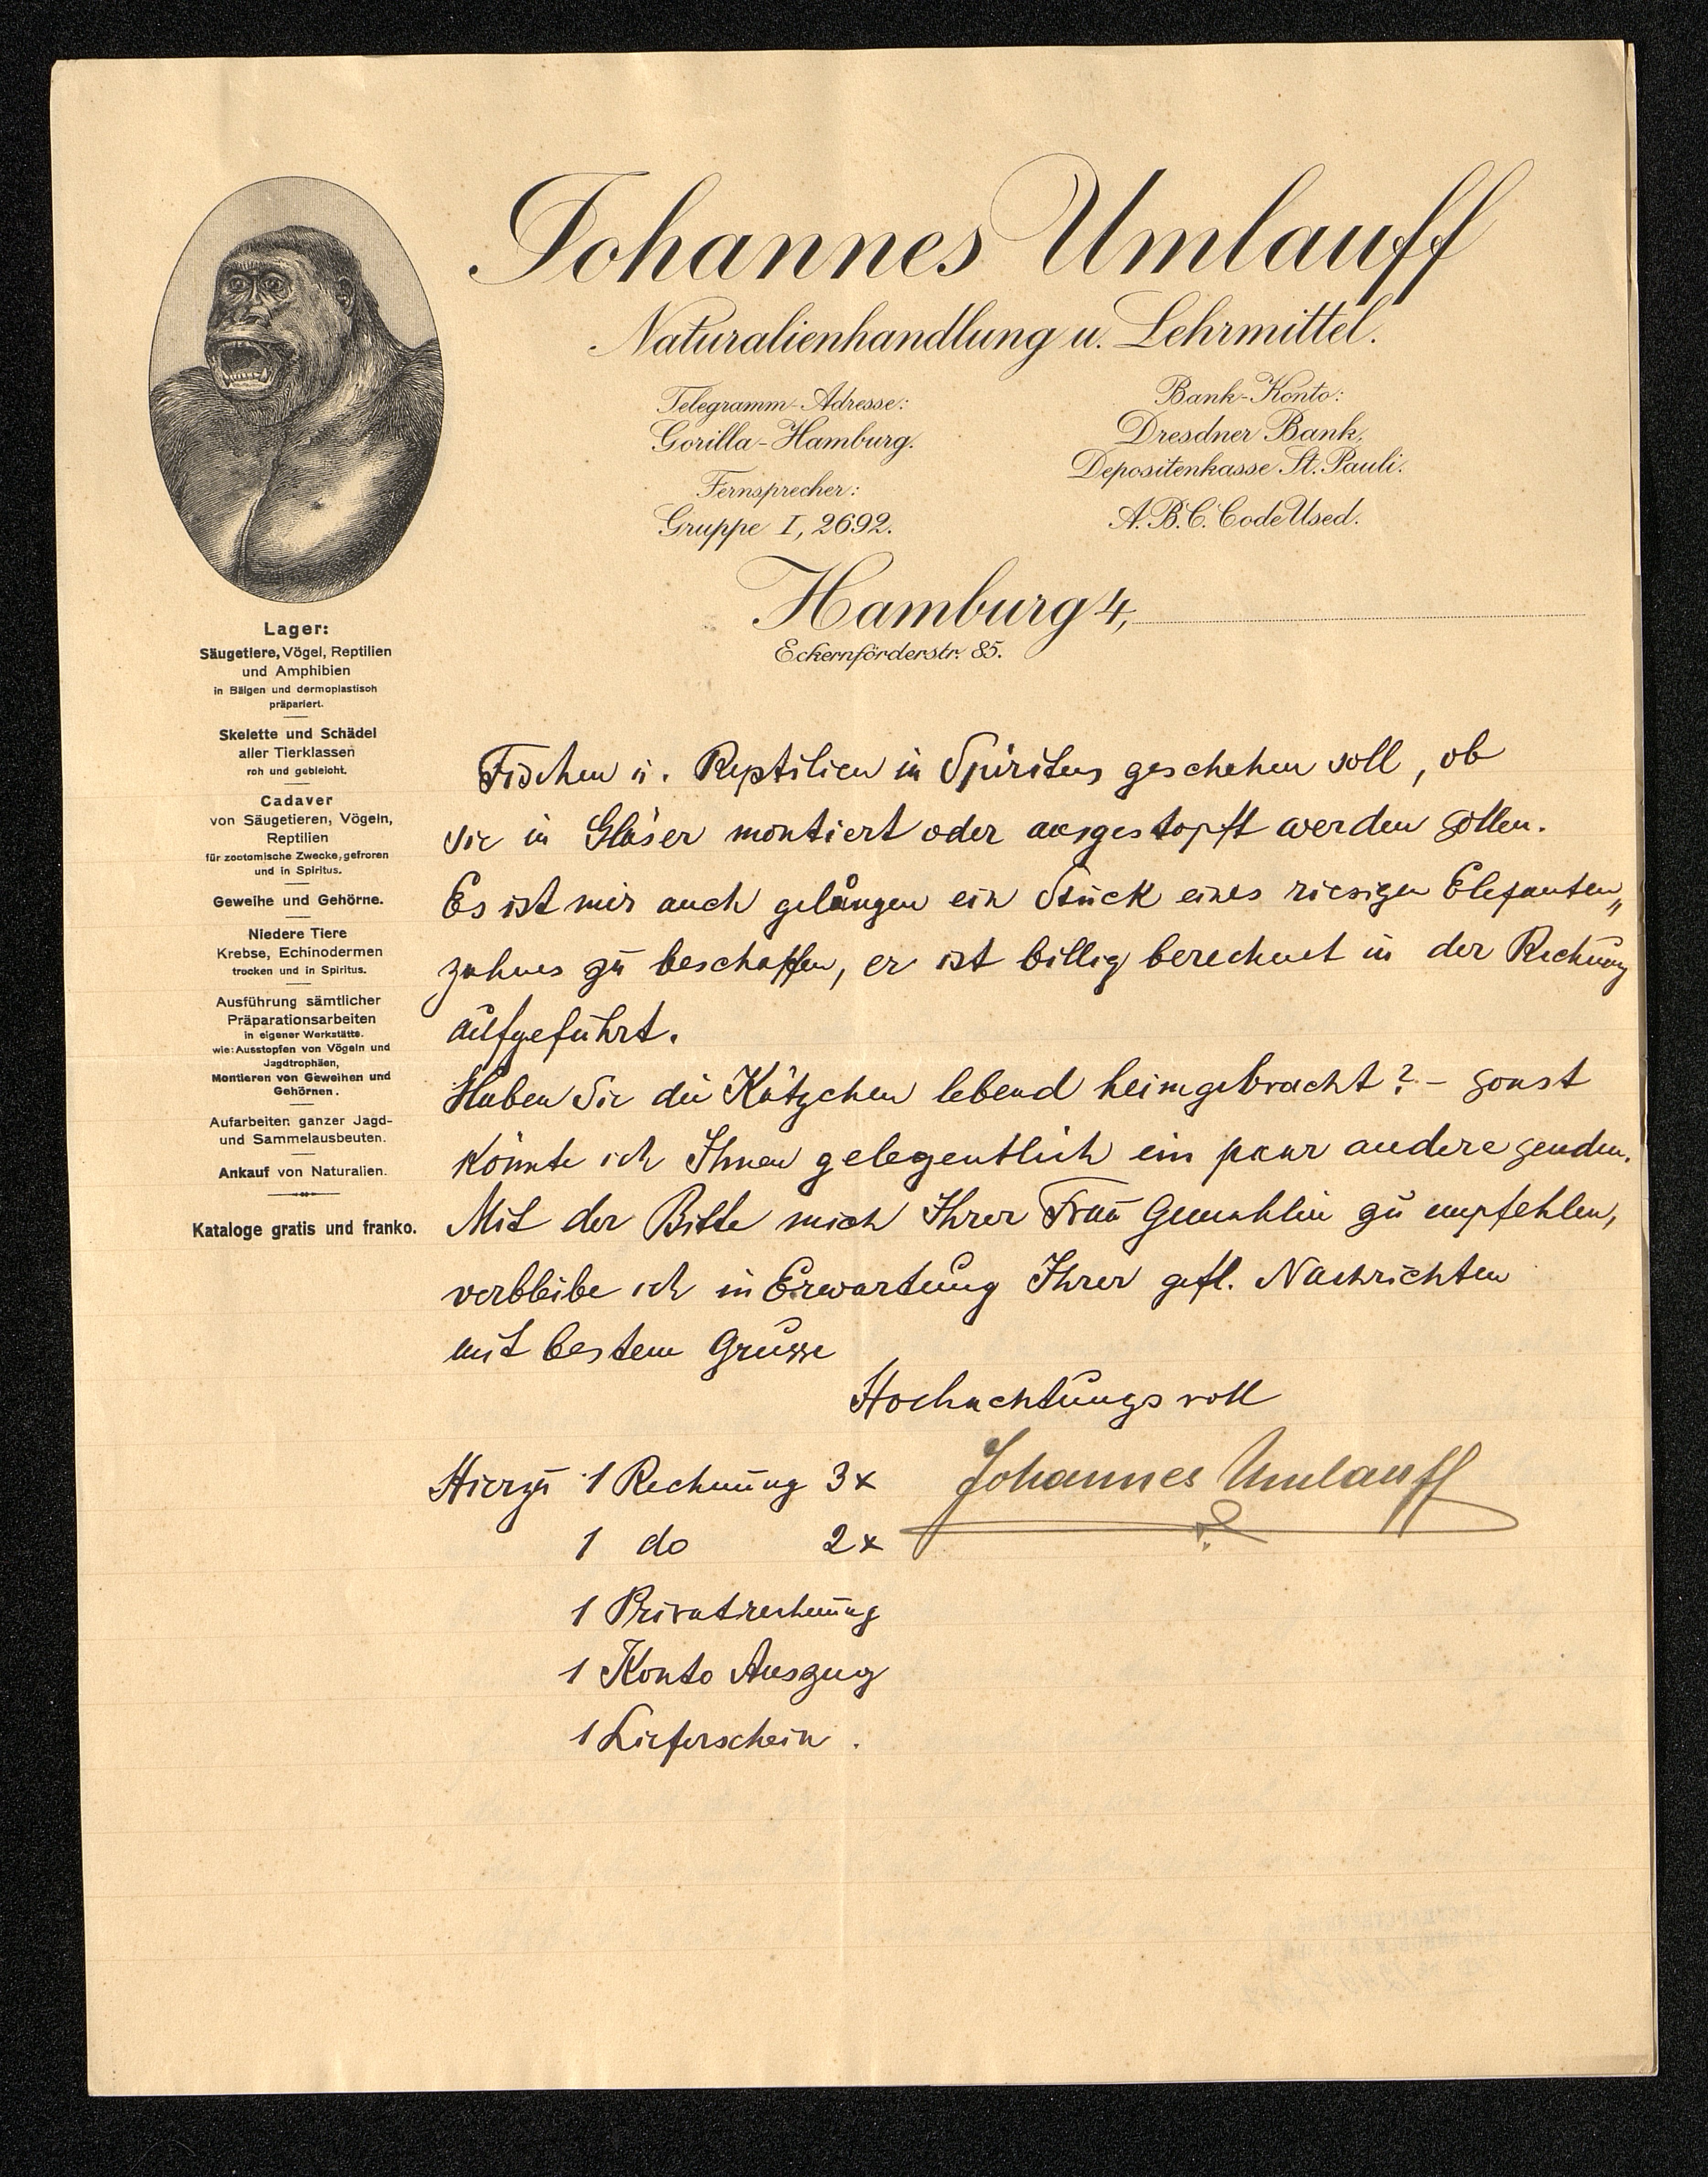 Johannes Umlauff
Naturalienhandlung u. Lehrmittel.
Telegramm-Adresse:
Gorilla-Hamburg.
Fernsprecher:
Gruppe I, 2692.
Bank-Konto:
Dresdner Bank,
Depositenkasse St. Pauli.
A.B.C. Code Used.
Hamburg 4,
Eckernförderstr. 85.
Lager:
Säugetiere, Vögel, Reptilien
und Amphibien
in Bälgen und dermoplastisch
präpariert.
Skelette und Schädel
aller Tierklassen
roh und gebleicht.
Cadaver
von Säugetieren, Vögeln,
Reptilien
für zootomische Zwecke, gefroren
und in Spiritus.
Geweihe und Gehörne.
Niedere Tiere
Krebse, Echinodermen
trocken und in Spiritus.
Ausführung sämtlicher
Präparationsarbeiten
in eigener Werkstätte.
wie: Ausstopfen von Vögeln und
Jagdtrophäen,
Montieren von Geweihen und
Gehörnen.
Aufarbeiten ganzer Jagd-
und Sammelausbeuten.
Ankauf von Naturalien.
Kataloge gratis und franko.
Fischen u. Reptilien in Spiritus geschehen soll, ob
sie in Gläser montiert oder ausgestopft werden sollen.
Es ist mir auch gelungen ein Stück eines riesigen Elefanten„
zahnes zu beschaffen, er ist billig berechnet in der Rechnung
aufgeführt.
Haben Sie die Kätzchen lebend heimgebracht? – sonst
könnte ich Ihnen gelegentlich ein paar andere senden.
Mit der Bitte mich Ihrer Frau Gemahlin zu empfehlen,
verbleibe ich in Erwartung Ihrer gefl. Nachrichten
mit bestem Grusse
Hochachtungsvoll
Johannes Umlauff
Hierzu 1 Rechnung 3x
1 do 2x
1 Privatrechnung
1 Konto Auszug
1 Lieferschein.